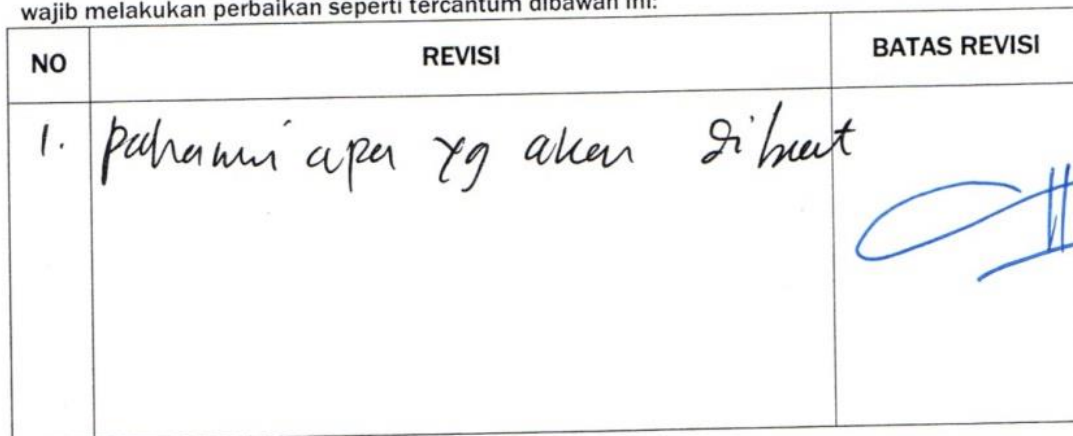 wajib melakukan perbaikan seperti tercantum dibawah ini:
NO REVISI BATAS REVISI
1. pahami apa yg akan dibuat